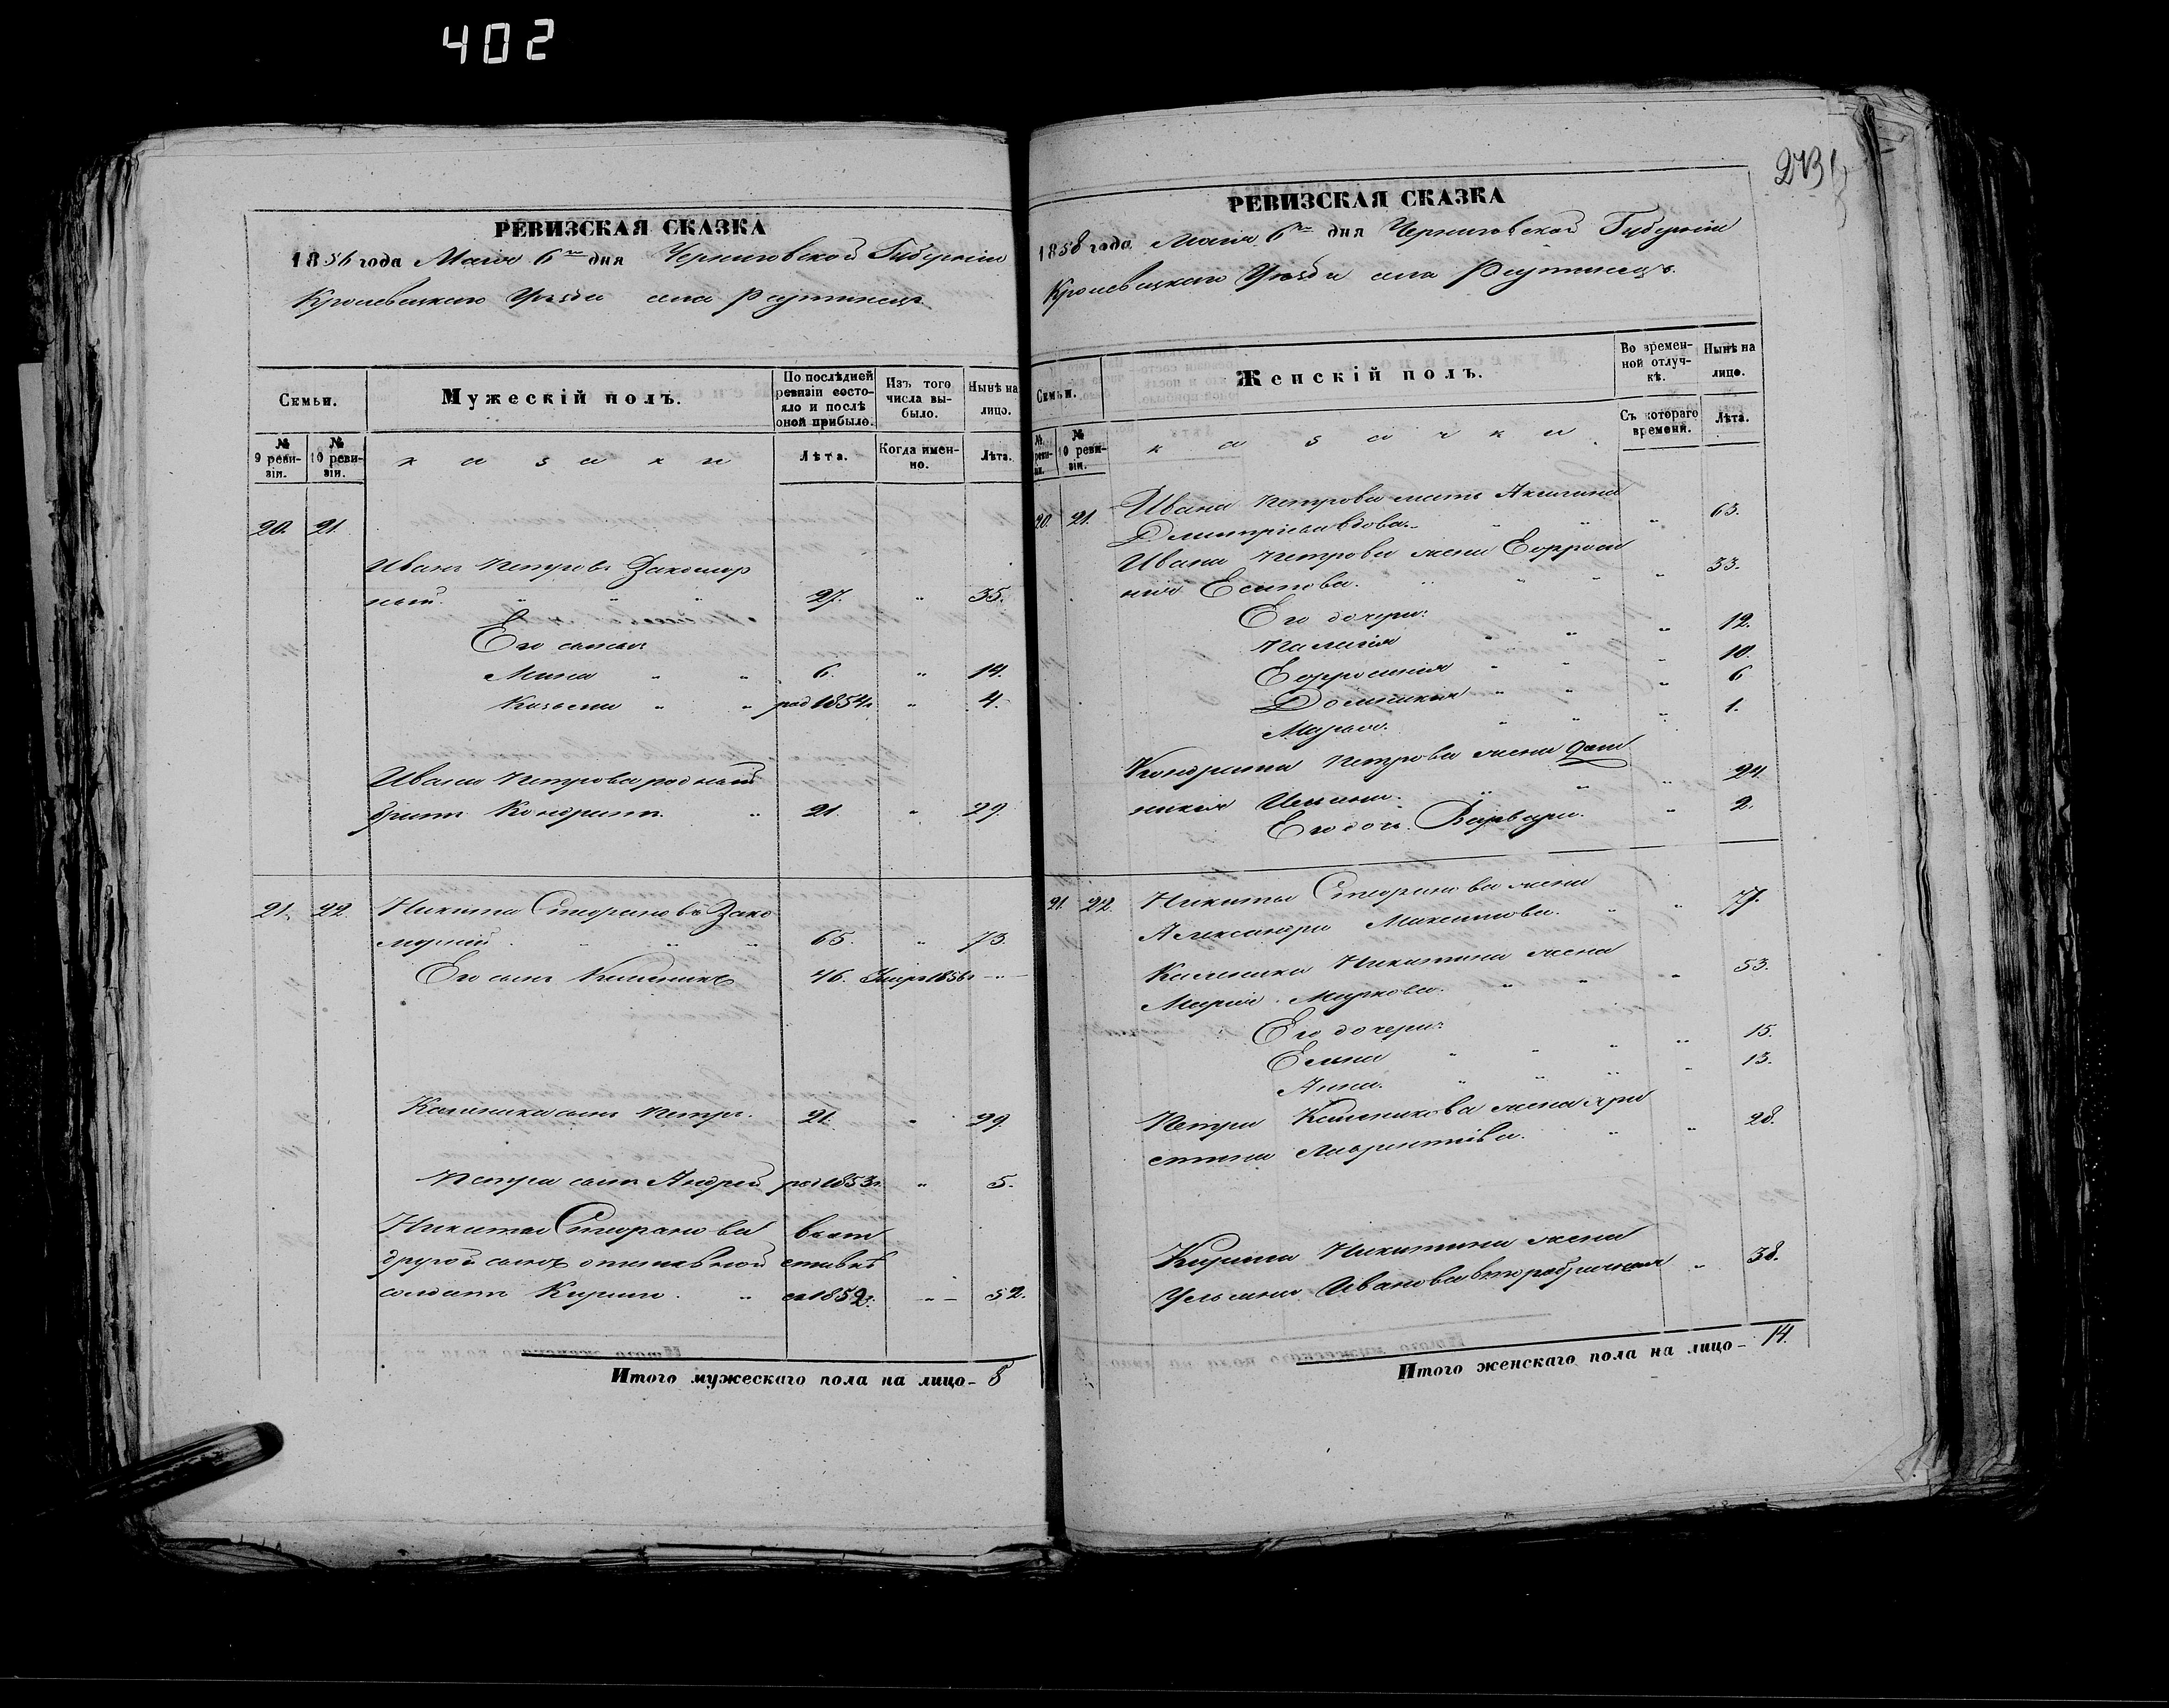 402
РЕВИЗСКАЯ СКАЗКА
1858 года Мая 6го дня Черниговской Губерніи
Кролевецкаго Уезда села Реутинецъ
Семьи.
Мужескій полъ.
По послѣдней ревизіи состояло и послѣ оной прибыло.
Изъ того числа выбыло.
Нынѣ на лицо.
№ 9 ревизіи.
№ 10 ревизіи.
казаки
Лѣта.
Когда именно.
Лѣта.
20. 21.
Иванъ Петровъ Закомор
ный. " " " 27. " 35.
Его сыновья
Мина " " 6. " 14.
Козьма " " род 1854г " 4.
Ивана Петрова родный
братъ Кондратъ. " 21. " 29.
21. 22. Никита Стефановъ Зако
морный . " " " 65. " 73.
Его сынъ Калиникъ 46. Умеръ 1856г - " -
Калиника сынъ Петръ. 21. " 29.
Петра сынъ Андрей род 1853г. " 5.
Никиты Стефанова
другой сынъ отставной
солдатъ Кирило. " 1852г. " - 52.
Итого мужескаго пола на лицо - 8
273
РЕВИЗСКАЯ СКАЗКА
1858 года Мая 6го дня Черниговской Губерніи
Кролевецкаго Уезда села Реутинецъ.
Семьи.
Женскій полъ.
Во временной отлучкѣ.
Нынѣ на лицо.
№ ревизіи.
№ 10 ревизіи.
казачки
Съ котораго времени.
Лѣта.
20. 21. Ивана Петрова мать Акилина
Дмитріева вдова. " " " 63.
Ивана Петрова жена Ефроси
нія Есипова. " " " " 33.
Его дочери:
Палагія " " " 12.
Ефросинія " " " 10.
Домникія " " " 6
Марья. " " " 1.
Кондрата Петрова жена Дом
никія Ильина. " " " 24.
Его дочь Варвара. " 2.
21. 22. Никиты Стефанова жена
Александра Максимова. " " 77.
Калиника Никитина жена
Марія Маркова. " " " 53.
Его дочери:
Елена " " " " 15.
Анна. " " " " 13.
Петра Каленикова жена Хри
стина Лаврентіева. " " 28.
Кирила Никитина жена
Ульяна Иванова второбрачная " 38.
Итого женскаго пола на лицо - 14.